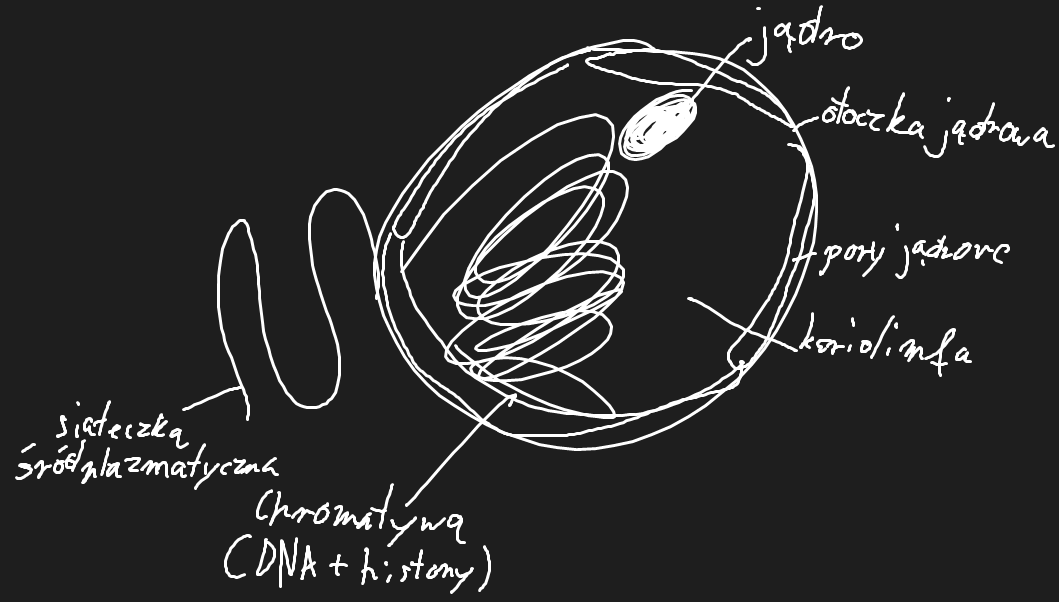 jądro
otoczka jądrowa
pory jądrowe
kariolimfa
siateczka
śródplazmatyczna
chromatyna
(DNA + histony)